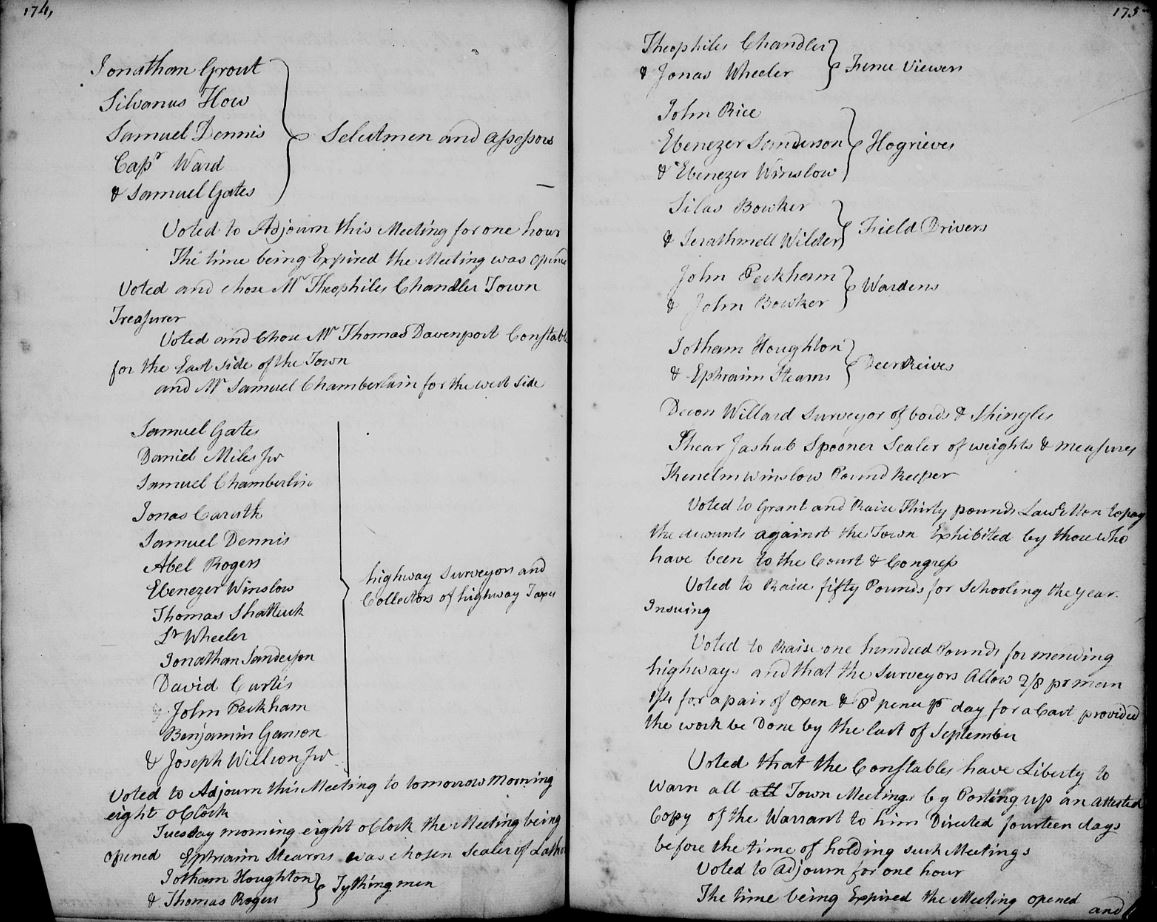 174,
Jonathan Grout
Silvanus How
Samuel Dennis
Capt Ward
& Samuel Gates
Selectmen and assessors
Voted to Adjourn this Meeting for one hour
The time being Expired the Meeting was opened
Voted and chose Mr Theophiles Chandler Town
Treasurer
Voted and Chose Mr Thomas Davenport Constable
for the East side of the Town
and Mr Samuel Chamberlain for the west side
Samuel Gates
Daniel Miles Jur
Samuel Chamberlin
Jonas Caruth
Samuel Dennis
Abel Rogers
Ebenezer Winslow
Thomas Shattuck
Lt Wheeler
Jonathan Sanderson
David Curtis
John Peckham
Benjamin Gamon
& Joseph Willson Jur
highway Surveyors and
Collectors of highway Taxes
Voted to Adjourn this Meeting to tomorrow Morning
eight o Clock
Tuesday morning eight o Clock the Meeting being
opened Ephraim Stearns was chosen Sealer of
Jotham Houghton
& Thomas Rogers
Tythingmen
175
Theophiles Chandler
& Jonas Wheeler
Fence Viewers
John Rice
Ebenezer Sanderson
& Ebenezer Winslow
Hogrieves
Silas Bowker
& Jerathmell Wilder
Field Drivers
John Peckham
& John Bowker
Wardens
Jotham Houghton
& Ephraim Stearns
Deer Reives
Deacon Willard Surveyor of boards & Shingles
Shear Jashub Spooner Sealer of weights & measures
Kenelm Winslow Pound Keeper
Voted to Grant and Raise Thirty pounds Lawl Mon to pay
the accounts against the Town Exhibited by those who
have been to the Court & Congress
Voted to Raise fifty Pounds for Schooling the year
Insuing
Voted to Raise one hundred Pounds for mending
highways and that the Surveyors Allow 2/8 pr man
1/4 for a pair of oxen & 8 pence pr day for a Cart provided
the work be Done by the last of September
Voted that the Constables have Liberty to
warn all all Town Meetings by Posting up an attested
Copy of the Warrant to him Directed fourteen days
before the time of holding such Meetings
Voted to adjourn for one hour
The time being Expired the Meeting opened
and